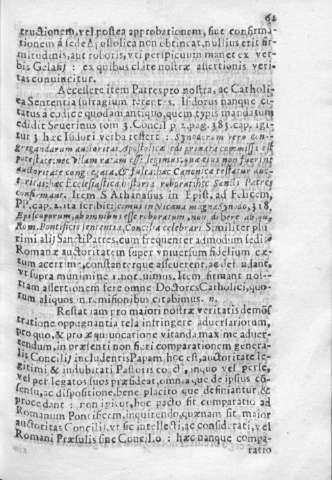 tructionem, vel postea approbationem, siue confirma
tionem à sede Apostolica non obtineat, nullius erit fir
mitudinis, aut roboris, vti perspicuum manet ex ver-
bis Gelasij : ex quibus clare nostræ assertionis veri
tas conuincitur.
Accessere item Patres pro nostra, ac Catholi
ea Sententia suffragium
tatus à codice quodam antiquo, quem typis mandatum
edidit Seuerinus tom 3. Concil p 1. pag. 383. cap. igi-
tur 3 hæc Isidori verba refert :
gregandarum auctoritas Apostolicæ sedi priuata commissa est
potestate: nec vllam ratam esse legimus, quæ eius non fuerint
auctoritate congregata, & fulta: hæc Canonica testatur auc-
toritas: hæc Ecclesiastica historia roborat: hæc Sancti Patres
confirmant. Item S Athanasius in Epist, ad Felicem,
PP. cap. 2. ita scribit: Nicæna magna Synodo, 318.
Episcoporum, ab omnibus esse roboratum, non debere absque
Rom. Pontificis sententia, Concilia celebrari Similiter plu
rimi alij Sancti Patres, cum frequenter admodum sedis
Romanæ auctoritatem super vniuersum fidelium cæ-
tum acerrime, constanterque asseuerent, ac defendant,
vt supra
tram assertionem fere omne Doctores Catholici, quo-
rum aliquos citabimus. n.
Restat iam pro maiori nostræ veritatis demons
tratione oppugnantia tela infringere aduersariorum,
pro quo, & pro æquiuocatione vitanda maxime aduer-
tendum, in præsenti non fieri comparationem genera-
lis Concilij includentis Papam, hoc est, auctoritate le-
gitimi & indubitati Pastoris inquo vel per se,
vel per legatos suos præsideat, omniaque de ipsius cō-
sensu, ac dispositione, bene placito que definiantur, &
procedant : non igitur, hoc pacto sit comparatio ad
Romanum Pontificem, inquirendo, quænam sit maior
auctoritas Concilij, vt sic intellecti, ac considerati, vel
Romani Præsulis sine Concilio : hæc nanque compa-
ratio